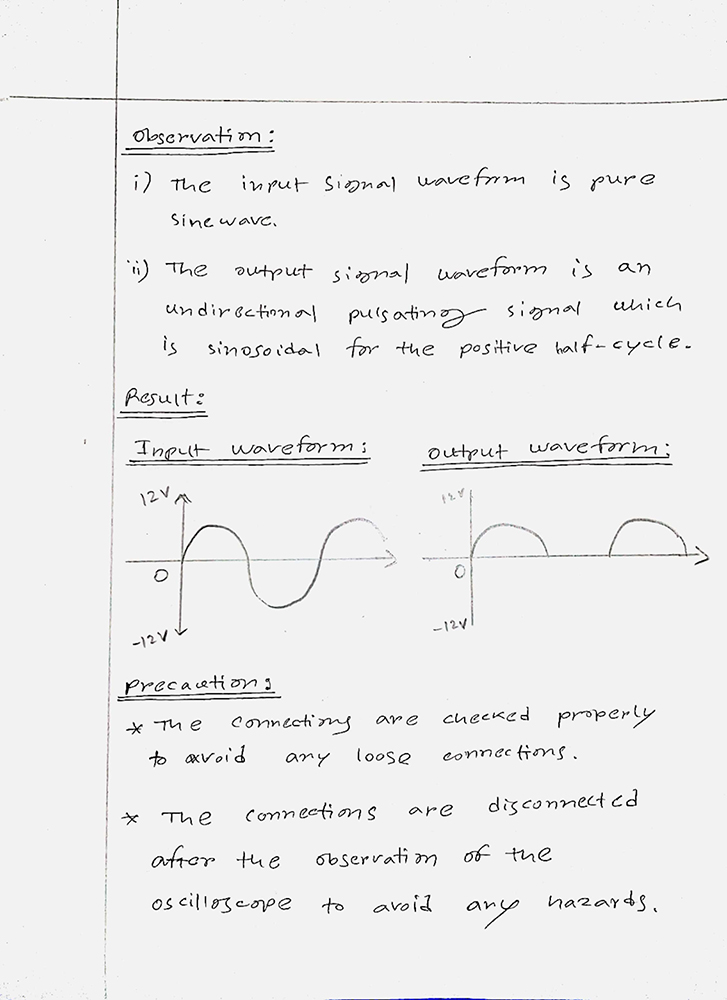 Observation:
i) The input signal waveform is pure
sine wave.
ii) The output signal waveform is an
undirectional pulsating signal which
is sinosoidal for the positive half-cycle.
Result:
Input waveform: Output waveform:
12V 12V
0 0
-12V -12V
Precaution:
* The connections are checked properly
to avoid any loose connections.
* The connections are disconnected
after the observation of the
oscilloscope to avoid any hazards.